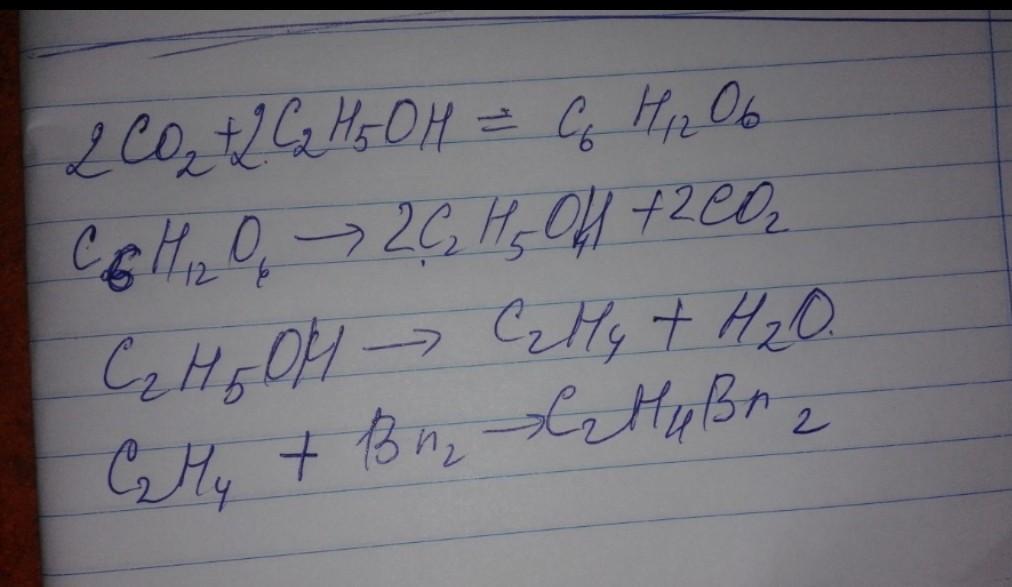 2CO₂+2C₂H₅OH = C₆ H₁₂O₆
C₆H₁₂O₆ → 2C₂H₅OH +2CO₂
C₂H₅OH → C₂H₄ + H₂O.
C₂H₄ + Br₂ → C₂H₄Br₂